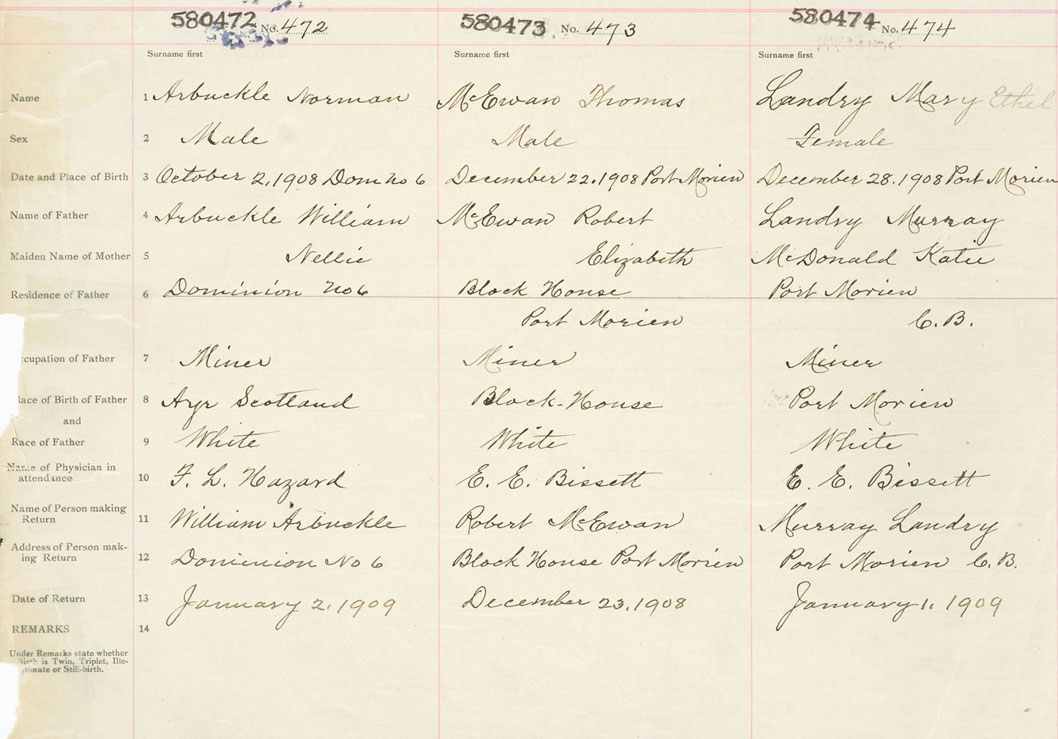 580472 No. 472 580473 No. 473 580474 No. 474
Surname first Surname first Surname first
Name 1 Arbuckle Norman McEwan Thomas Landry Mary Ethel
Sex 2 Male Male Female
Date and Place of Birth 3 October 2, 1908 Dom no 6 December 22, 1908 Port Morien December 28. 1908 Port Morien
Name of Father 4 Arbuckle William McEwan Robert Landry Murray
Maiden Name of Mother 5 Nellie Elizabeth McDonald Katie
Residence of Father 6 Dominion No 6 Block House Port Morien
Port Morien C. B.
ccupation of Father 7 Miner Miner Miner
lace of Birth of Father 8 Ayr Scotland Block-House Port Morien
and
Race of Father 9 White White White
Name of Physician in
attendance 10 F. L. Hazard E. E. Bissett E. E. Bissett
Name of Person making
Return 11 William Arbuckle Robert McEwan Murray Landry
Address of Person mak-
ing Return 12 Dominion No 6 Block House Port Morien Port Morien C. B.
Date of Return 13 January 2, 1909 December 23, 1908 January 1, 1909
REMARKS 14
Under Remarks state whether
Birth is Twin, Triplet, Ille-
timate or Still-birth.